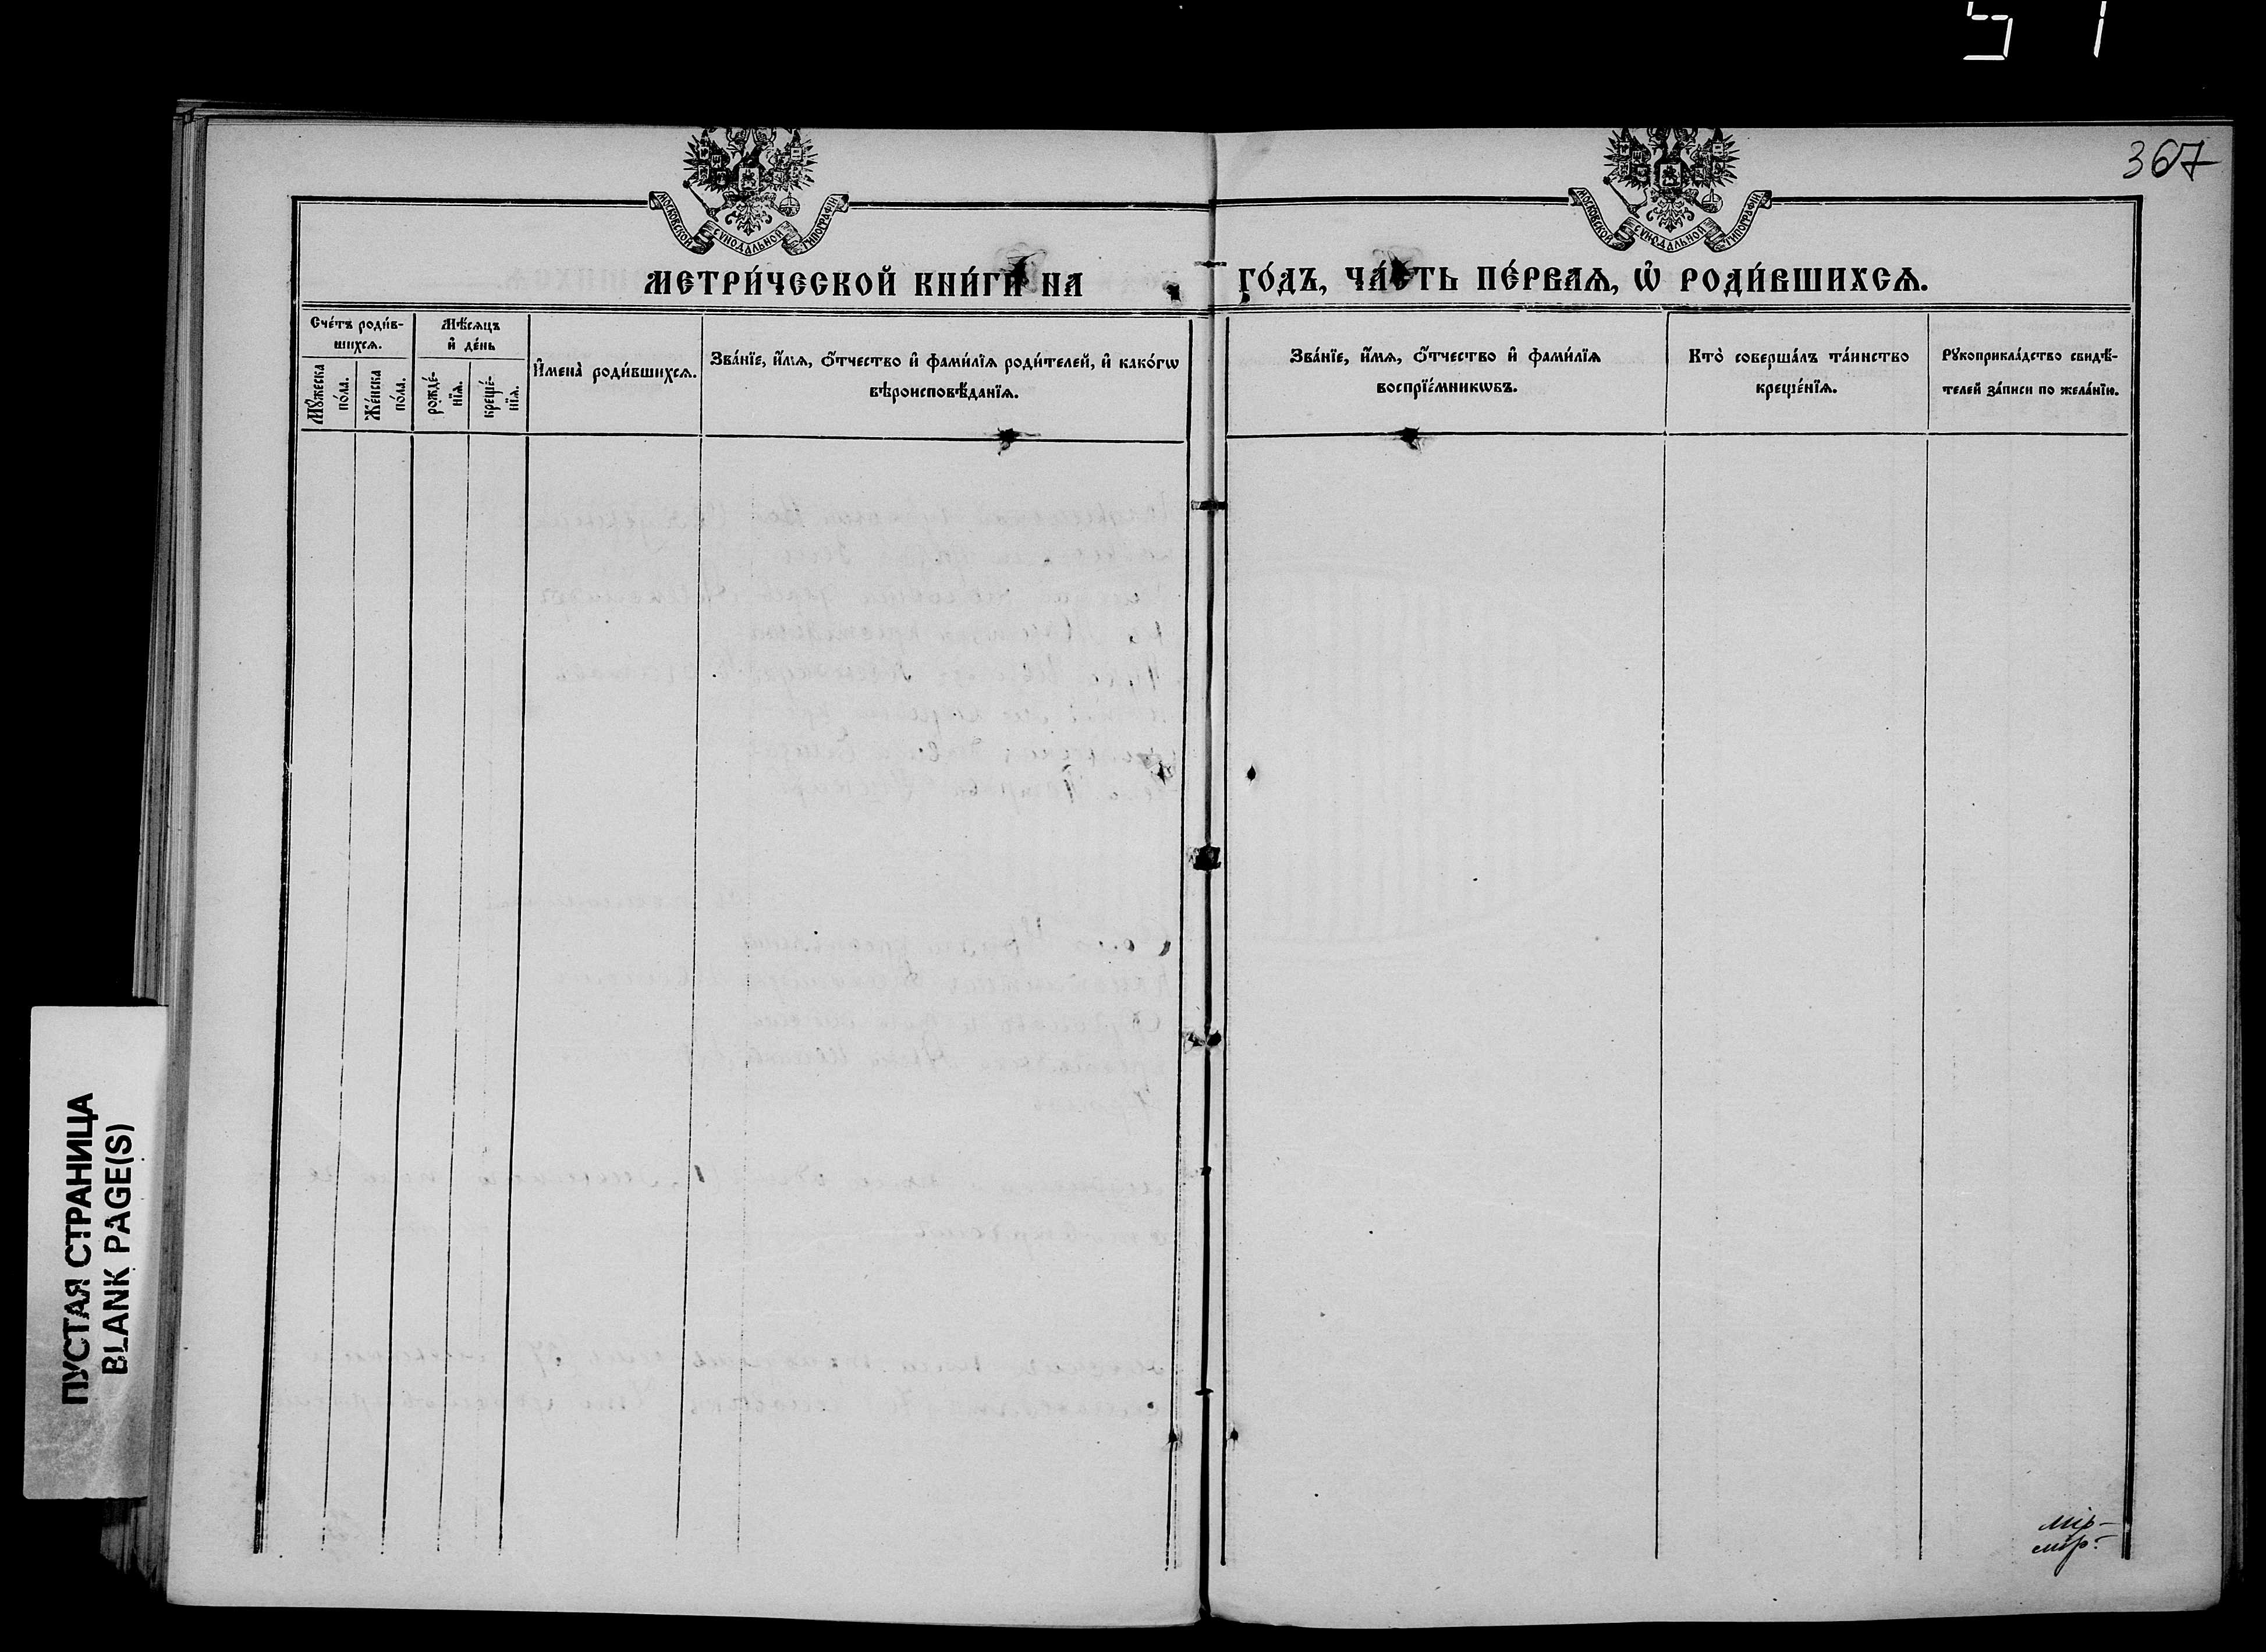 51
367
МОСКОВСКОЙ СѴНОДАЛЬНОЙ ТИПОГРАФІИ
МОСКОВСКОЙ СѴНОДАЛЬНОЙ ТИПОГРАФІИ
МЕТРИ́ЧЕСКОЙ КНИ́ГИ НА ГО́ДЪ, ЧА́СТЬ ПЕ́РВАѦ, Ѽ РОДИ́ВШИХСѦ.
Сче́тъ роди́в-
шихсѧ.
Мꙋ́жеска
по́ла.
Же́нска
по́ла.
Мѣ́сѧцъ
и҆ де́нь
рожде́-
нїѧ.
креще́-
нїѧ.
И҆мена̀ роди́вшихсѧ.
Зва́нїе, и҆́мѧ, ѻ҆́тчество и҆ фами́лїѧ роди́телей, и҆ како́гѡ
вѣроисповѣ́данїѧ.
Зва́нїе, и҆́мѧ, ѻ҆́тчество и҆ фами́лїѧ
воспрїе́мникѡвъ.
Кто̀ соверша́лъ та́инство
креще́нїѧ.
Рꙋкоприкла́дство свидѣ́-
телей за́писи по жела́нїю.
ПУСТАЯ СТРАНИЦА
BLANK PAGE(S)